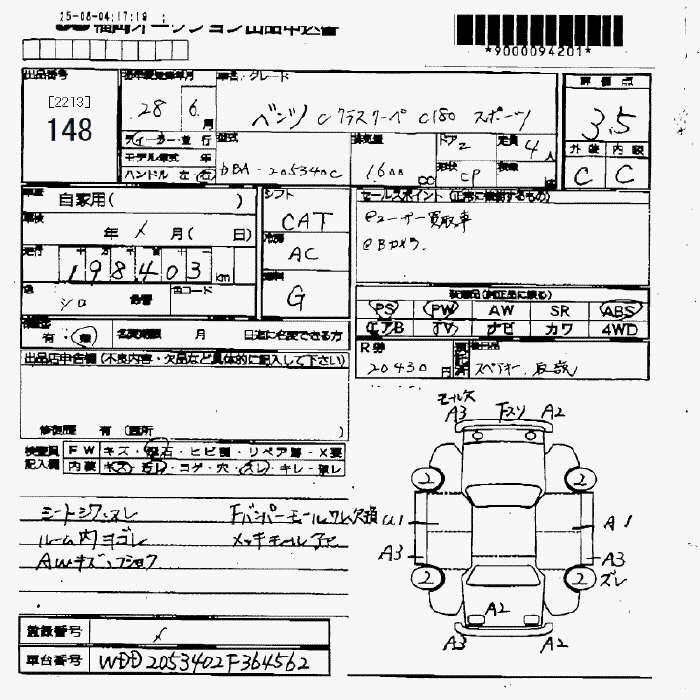 25-08-04;17:19 ;
福岡オークション出品申込書
*9000094201*
出品番号
[2213]
148
初年度登録年月
28 6 月
ディーラー・並行
モデル年式 年
ハンドル 左・右
車名・グレード
ベンツ Cクラスクーペ C180 スポーツ
型式
DBA-205340C
排気量
1,600 CC
ドア 2
形状 CP
定員 4 人
検績
評価点
3.5
外装 内装
C C
車歴
自家用( )
車検
年 × 月( 日)
走行
198403 km
色
シロ
色替
色コード
シフト
CAT
冷房
AC
燃料
G
セールスポイント (正常に機能するもの)
@ユーザー買取車
@Bカメラ.
装備品(純正品に限る)
PS PW AW SR ABS
エアB TV ナビ カワ 4WD
有・無
名変期限 月 日迄に名変できる方
R券
20430 円
後日品
スペアキー,取説
出品店申告欄 (不良内容・欠品など具体的に記入して下さい)
修復歴 有 (箇所 )
検査員記入欄
FW キズ・飛石・ヒビ割・リペア跡・X要
内装 キズ・汚レ・コゲ・穴・スレ・キレ・破レ
シートシワ・スレ
ルーム内ヨゴレ
AWキズ・フショク
Fバンパーモールワレ欠損
メッキモールアセ
モール欠
A3 Fスリ A2
2 2
U1 A1
A3 A3
スレ
2 2
A2
A3 A2
登録番号
×
車台番号
WDD2053402F364562